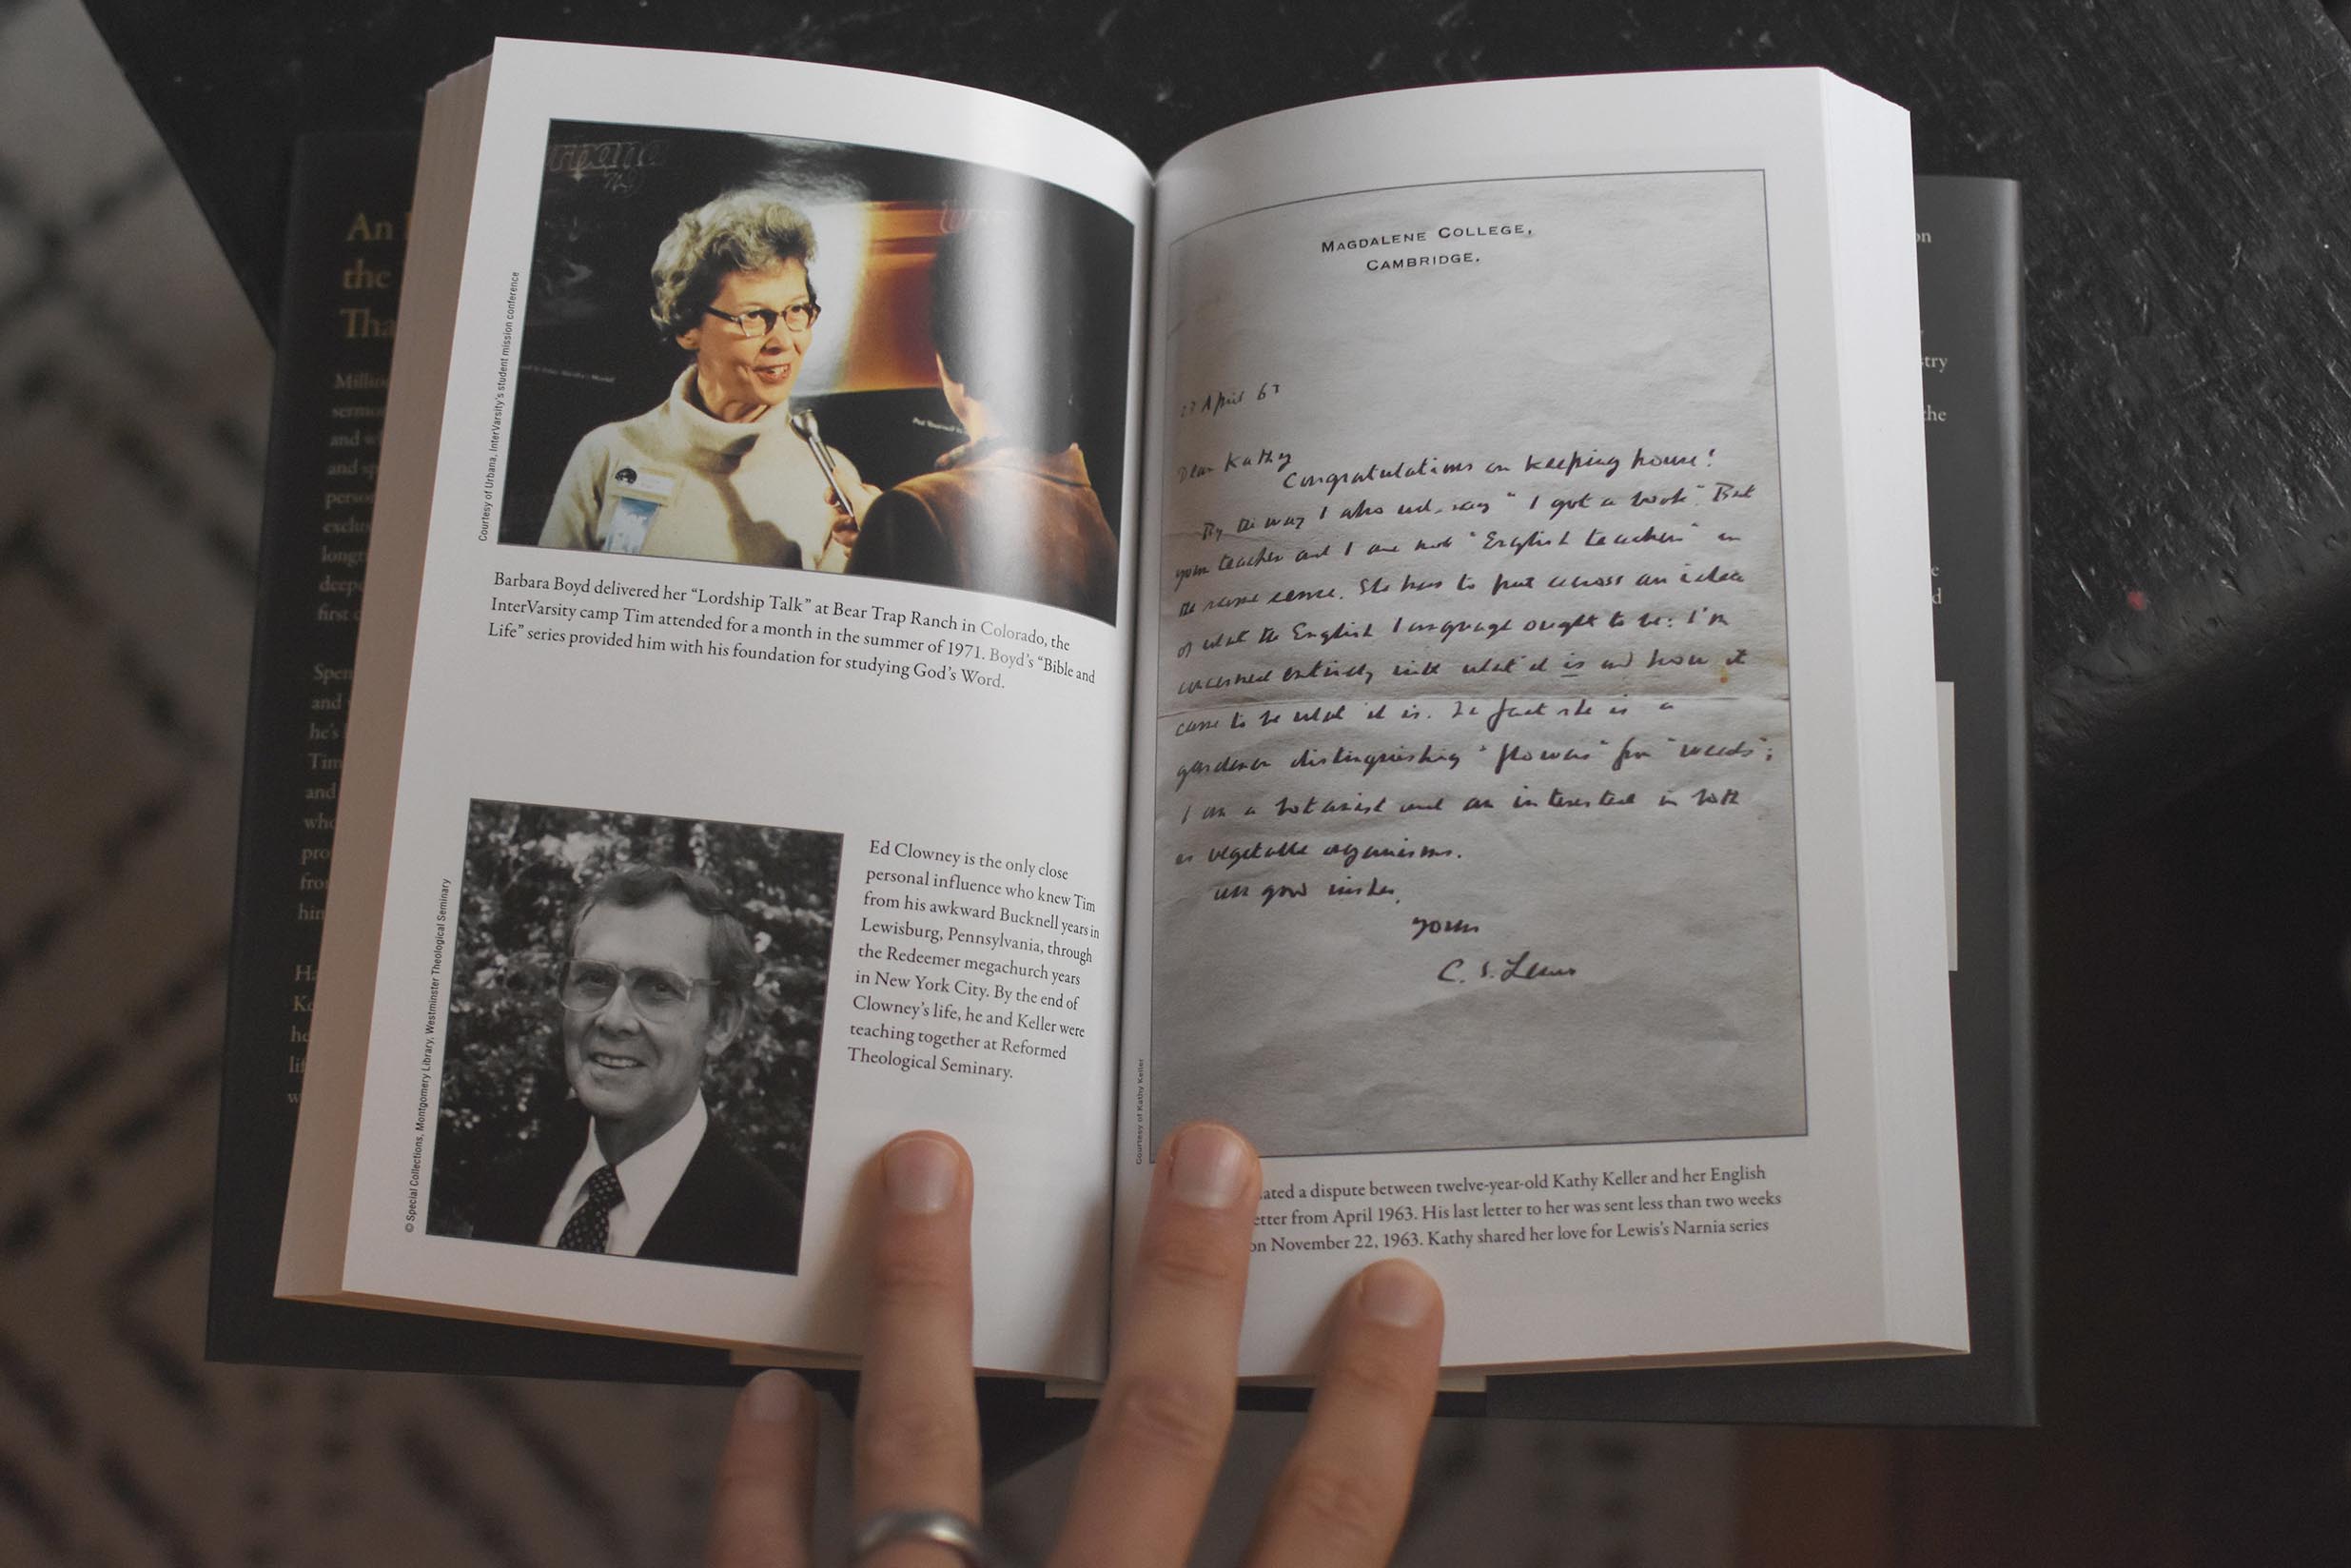 rpana
79
Courtesy of Urbana, InterVarsity's student mission conference
Barbara Boyd delivered her “Lordship Talk” at Bear Trap Ranch in Colorado, the
InterVarsity camp Tim attended for a month in the summer of 1971. Boyd’s “Bible and
Life” series provided him with his foundation for studying God’s Word.
© Special Collections, Montgomery Library, Westminster Theological Seminary
Ed Clowney is the only close
personal influence who knew Tim
from his awkward Bucknell years in
Lewisburg, Pennsylvania, through
the Redeemer megachurch years
in New York City. By the end of
Clowney’s life, he and Keller were
teaching together at Reformed
Theological Seminary.
MAGDALENE COLLEGE,
CAMBRIDGE.
April 63
Dear Kathy
Congratulations on keeping house!
By the way I also say “I got a book”. But
your teacher and I are not “English teachers” in
the same sense. She has to put across an idea
of what the English language ought to be: I'm
concerned entirely with what it is and how it
came to be what it is. In fact she is a
gardener distinguishing “flowers” from “weeds”;
I am a botanist and am interested in both
as vegetable organisms.
All good wishes,
yours
C. S. Lewis
Courtesy of Kathy Keller
ated a dispute between twelve-year-old Kathy Keller and her English
etter from April 1963. His last letter to her was sent less than two weeks
on November 22, 1963. Kathy shared her love for Lewis’s Narnia series
An
the
Tha
Million
sermo
and w
and sp
person
exclu
longt
deepe
first c
Spen
and
he's
Tim
and
who
pro
fro
him
Ha
Ke
he
lif
w
on
stry
the
e
d